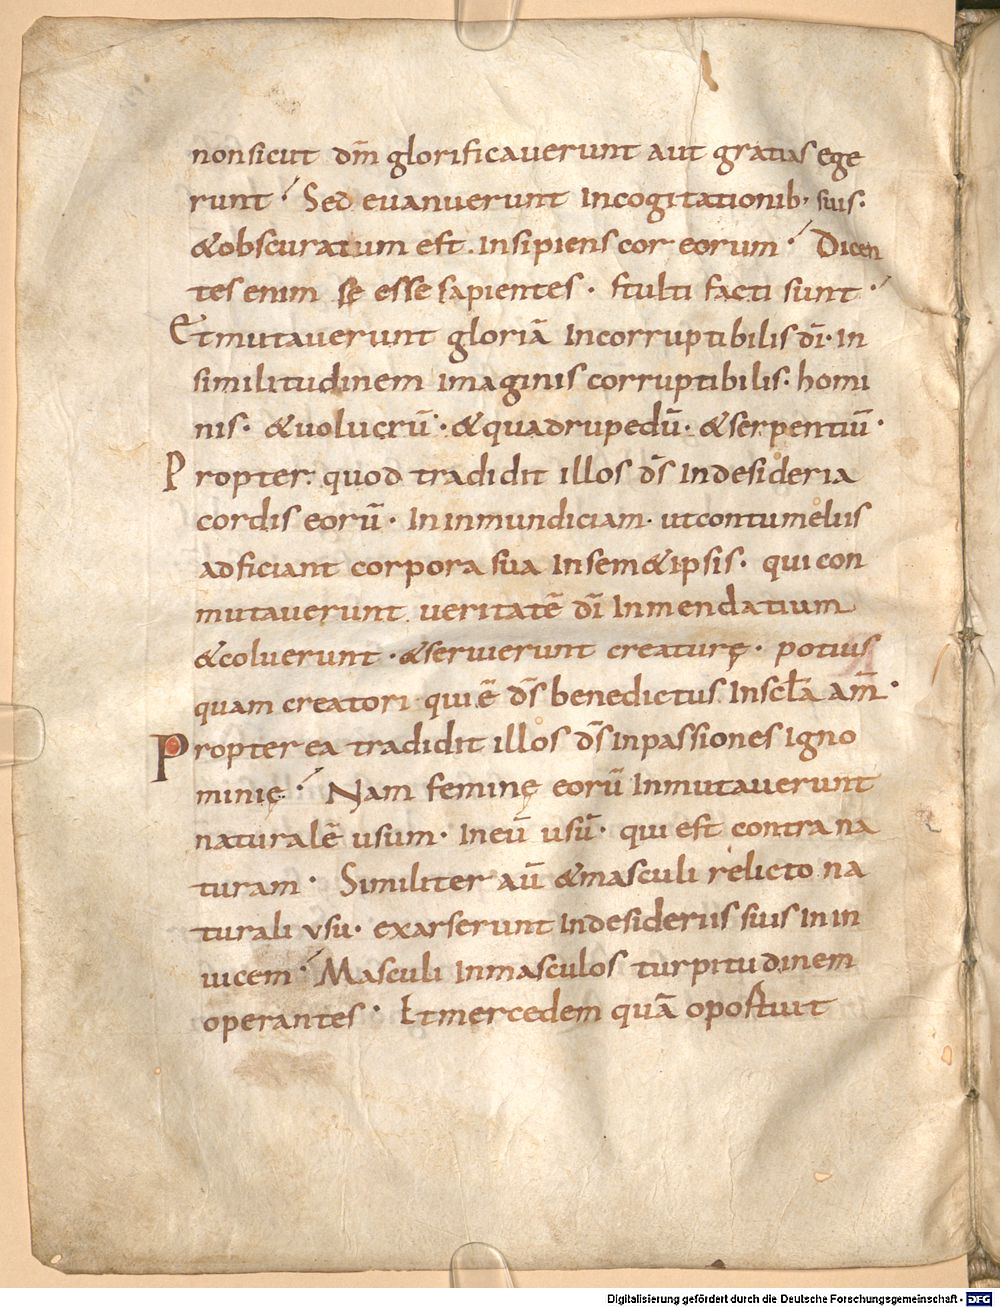 nonsicut dm̄ glorificauerunt aut gratias ege
runt · Sed euanuerunt Incogitationib; suis·
&obscuratum est · Insipiens cor eorum · Dicen
tes enim se esse sapientes · stulti facti sunt ·
Etmutauerunt gloriā Incorruptibilis dī· In
similitudinem imaginis corruptibilis· homi
nis· &uolucrū · &quadrupedū· &serpentiū·
Propter quod tradidit illos ds̄ Indesideria
cordis eorū· In inmundiciam· utcontumeliis
adficiant corpora sua Insem&ipsis· qui con
mutauerunt ueritatē dī Inmendatium
&coluerunt ·&seruierunt creaturę · potius
quam creatori· qui ē ds̄ benedictus Inscl̄a am̄·
Propter ea tradidit illos ds̄ Inpassiones Igno
minię · Nam feminę eorū Inmutauerunt
naturalē usum· Ineū usū· qui est contra na
turam · Similiter aū &masculi relicto na
turali usu· exarserunt Indesideriis suis In in
uicem · Masculi Inmasculos turpitudinem
operantes · Etmercedem quā oportuit
Digitalisierung gefördert durch die Deutsche Forschungsgemeinschaft - DFG